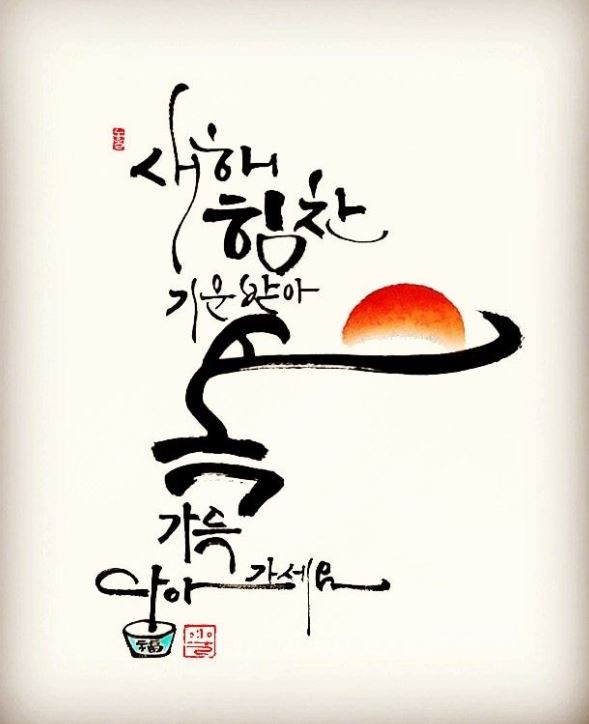 새해
힘찬
기운받아
복
가득
담아 가세요
福